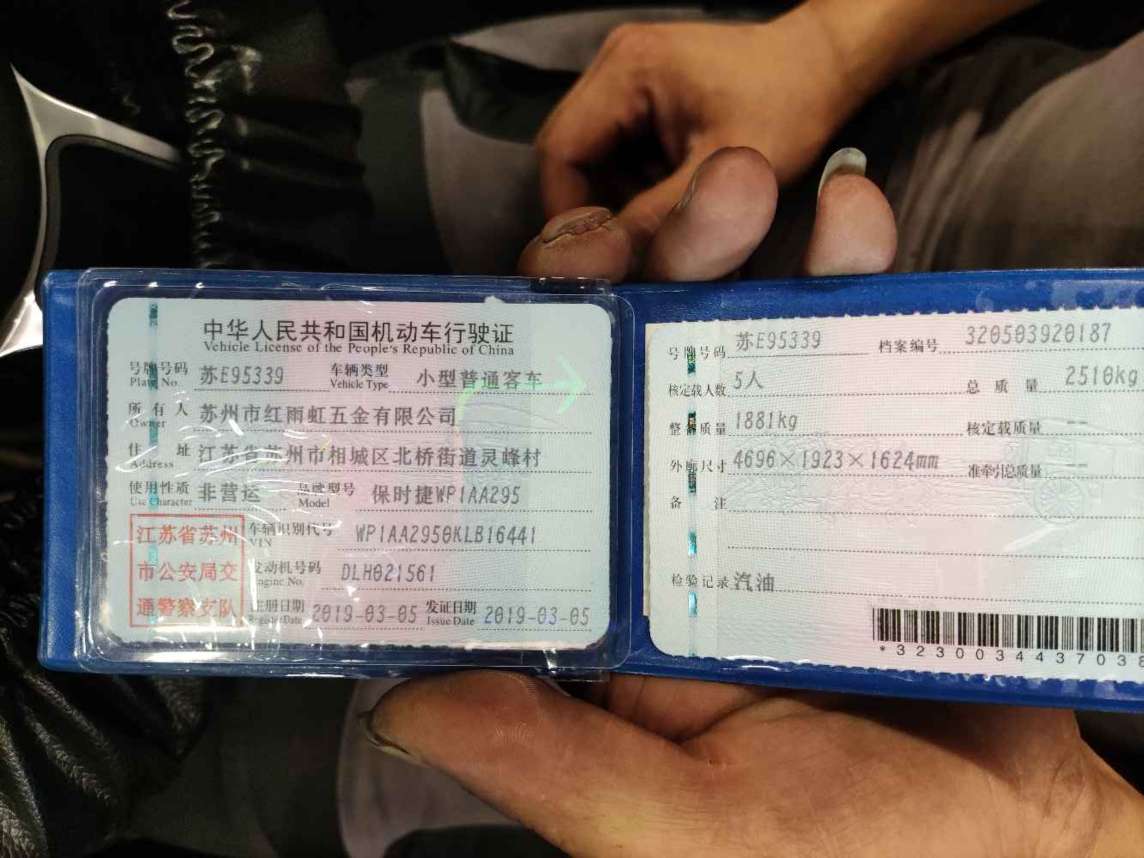 中华人民共和国机动车行驶证
Vehicle License of the People's Republic of China
号牌号码 苏E95339 车辆类型 小型普通客车
Plate No. Vehicle Type
所有人 苏州市红雨虹五金有限公司
Owner
住址 江苏省苏州市相城区北桥街道灵峰村
Address
使用性质 非营运 品牌型号 保时捷WP1AA295
Use Character Model
江苏省苏州
市公安局交
通警察支队
车辆识别代号 WP1AA2950KLB16441
VIN
发动机号码 DLH021561
Engine No.
注册日期 2019-03-05 发证日期 2019-03-05
Register Date Issue Date
号牌号码 苏E95339 档案编号 320503920187
核定载人数 5人 总质量 2510kg
整备质量 1881kg 核定载质量 --
外廓尺寸 4696×1923×1624mm 准牵引总质量 --
备注
检验记录 汽油
*323003443703